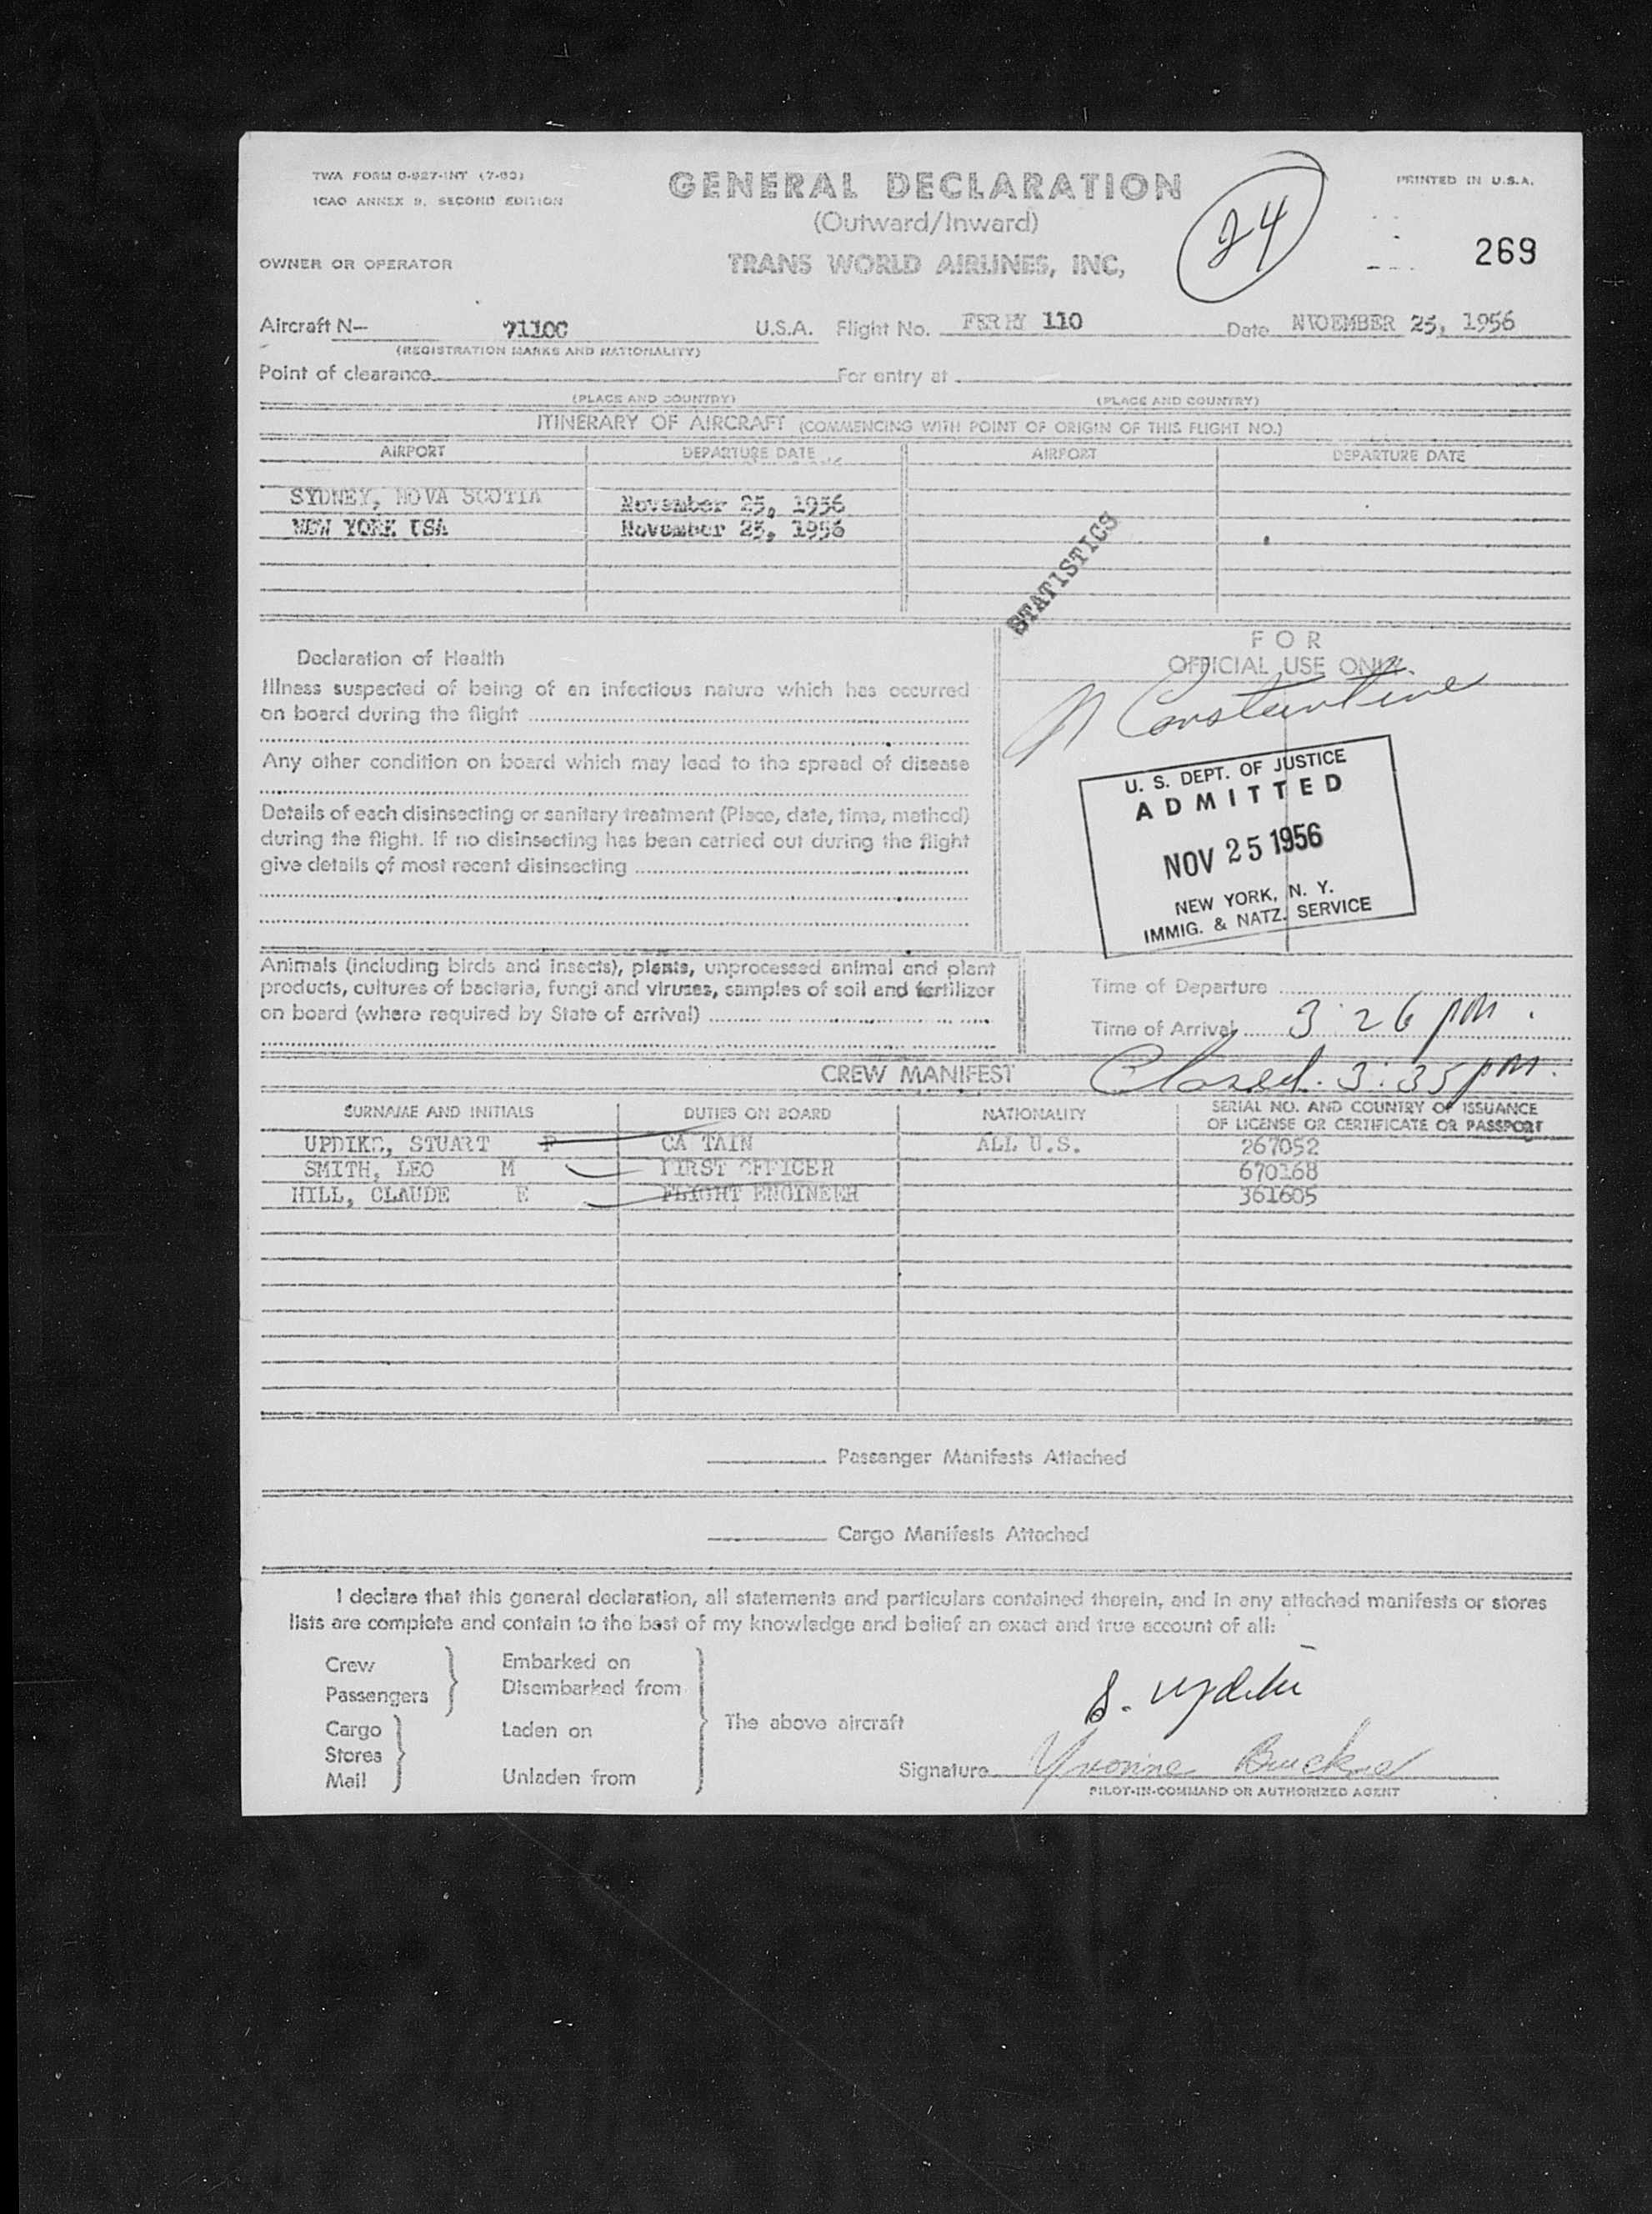 TWA FORM O-927-INT (7-53)
ICAO ANNEX 9, SECOND EDITION
GENERAL DECLARATION
(Outward/Inward)
PRINTED IN U.S.A.
24
269
OWNER OR OPERATOR
TRANS WORLD AIRLINES, INC,
Aircraft N— 7110C U.S.A. Flight No. FERRY 110 Date NVOEMBER 25, 1956
(REGISTRATION MARKS AND NATIONALITY)
Point of clearance For entry at
(PLACE AND COUNTRY) (PLACE AND COUNTRY)
ITINERARY OF AIRCRAFT (COMMENCING WITH POINT OF ORIGIN OF THIS FLIGHT NO.)
AIRPORT DEPARTURE DATE AIRPORT DEPARTURE DATE
SYDNEY, NOVA SCOTIA November 25, 1956
NEW YORK USA November 25, 1956
STATISTICS
Declaration of Health
Illness suspected of being of an infectious nature which has occurred
on board during the flight
Any other condition on board which may lead to the spread of disease
Details of each disinsecting or sanitary treatment (Place, date, time, method)
during the flight. If no disinsecting has been carried out during the flight
give details of most recent disinsecting
FOR
OFFICIAL USE ONLY
N Constantine
U. S. DEPT. OF JUSTICE
ADMITTED
NOV 25 1956
NEW YORK, N. Y.
IMMIG. & NATZ. SERVICE
Animals (including birds and insects), plants, unprocessed animal and plant
products, cultures of bacteria, fungi and viruses, samples of soil and fertilizer
on board (where required by State of arrival)
Time of Departure
Time of Arrival 3:26 pm.
CREW MANIFEST
Closed. 3:35 pm.
SURNAME AND INITIALS DUTIES ON BOARD NATIONALITY SERIAL NO. AND COUNTRY OF ISSUANCE
OF LICENSE OR CERTIFICATE OR PASSPORT
UPDIKE, STUART P CA TAIN ALL U.S. 267052
SMITH, LEO M FIRST OFFICER 670168
HILL, CLAUDE E FLIGHT ENGINEER 361605
Passenger Manifests Attached
Cargo Manifests Attached
I declare that this general declaration, all statements and particulars contained therein, and in any attached manifests or stores
lists are complete and contain to the best of my knowledge and belief an exact and true account of all:
Crew Embarked on
Passengers Disembarked from
Cargo Laden on
Stores
Mail Unladen from
The above aircraft
S. Updike
Signature Yvonne
PILOT-IN-COMMAND OR AUTHORIZED AGENT